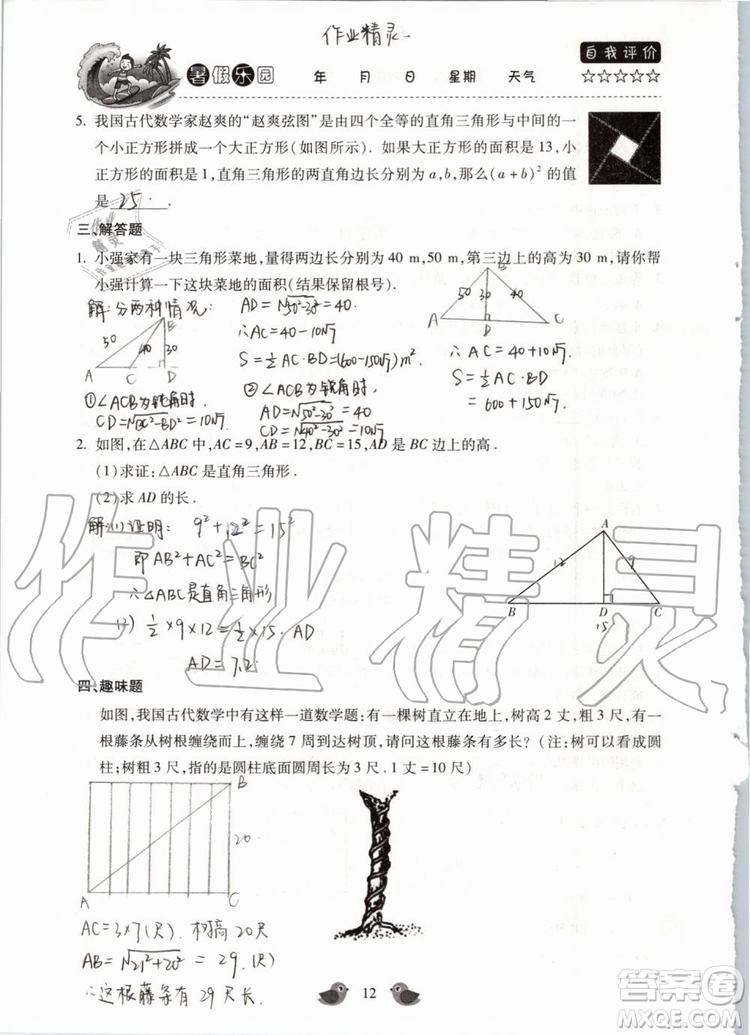 作业精灵
暑假乐园 年 月 日 星期 天气
自我评价
☆☆☆☆☆
5. 我国古代数学家赵爽的“赵爽弦图”是由四个全等的直角三角形与中间的一
个小正方形拼成一个大正方形(如图所示). 如果大正方形的面积是13,小
正方形的面积是1,直角三角形的两直角边长分别为a,b,那么(a+b)²的值
是 25 .
三、解答题
1. 小强家有一块三角形菜地,量得两边长分别为40 m,50 m,第三边上的高为30 m,请你帮
小强计算一下这块菜地的面积(结果保留根号).
解:分两种情况:
50 40 30
A C D B
①∠ACB为钝角时
CD=√BC²-BD²=10√7
AD=√50²-30²=40
∴AC=40-10√7
S=½AC·BD=(600-150√7)m²
②∠ACB为锐角时
AD=√50²-30²=40
CD=√40²-30²=10√7
B
50 30 40
A D C
∴AC=40+10√7
S=½AC·BD
=600+150√7
2. 如图,在△ABC中,AC=9,AB=12,BC=15,AD是BC边上的高.
(1)求证:△ABC是直角三角形.
(2)求AD的长.
解:(1)证明: 9²+12²=15²
即AB²+AC²=BC²
∴△ABC是直角三角形
(2) ½×9×12=½×15·AD
AD=7.2
A
12 9
B D C
15
四、趣味题
如图,我国古代数学中有这样一道数学题:有一棵树直立在地上,树高2丈,粗3尺,有一
根藤条从树根缠绕而上,缠绕7周到达树顶,请问这根藤条有多长?(注:树可以看成圆
柱;树粗3尺,指的是圆柱底面圆周长为3尺. 1丈=10尺)
B
20
A C
AC=3×7(尺). 树高20尺
AB=√21²+20²=29.(尺)
∴这根藤条有29尺长.
12
作业精灵
答案圈
MXQE.COM